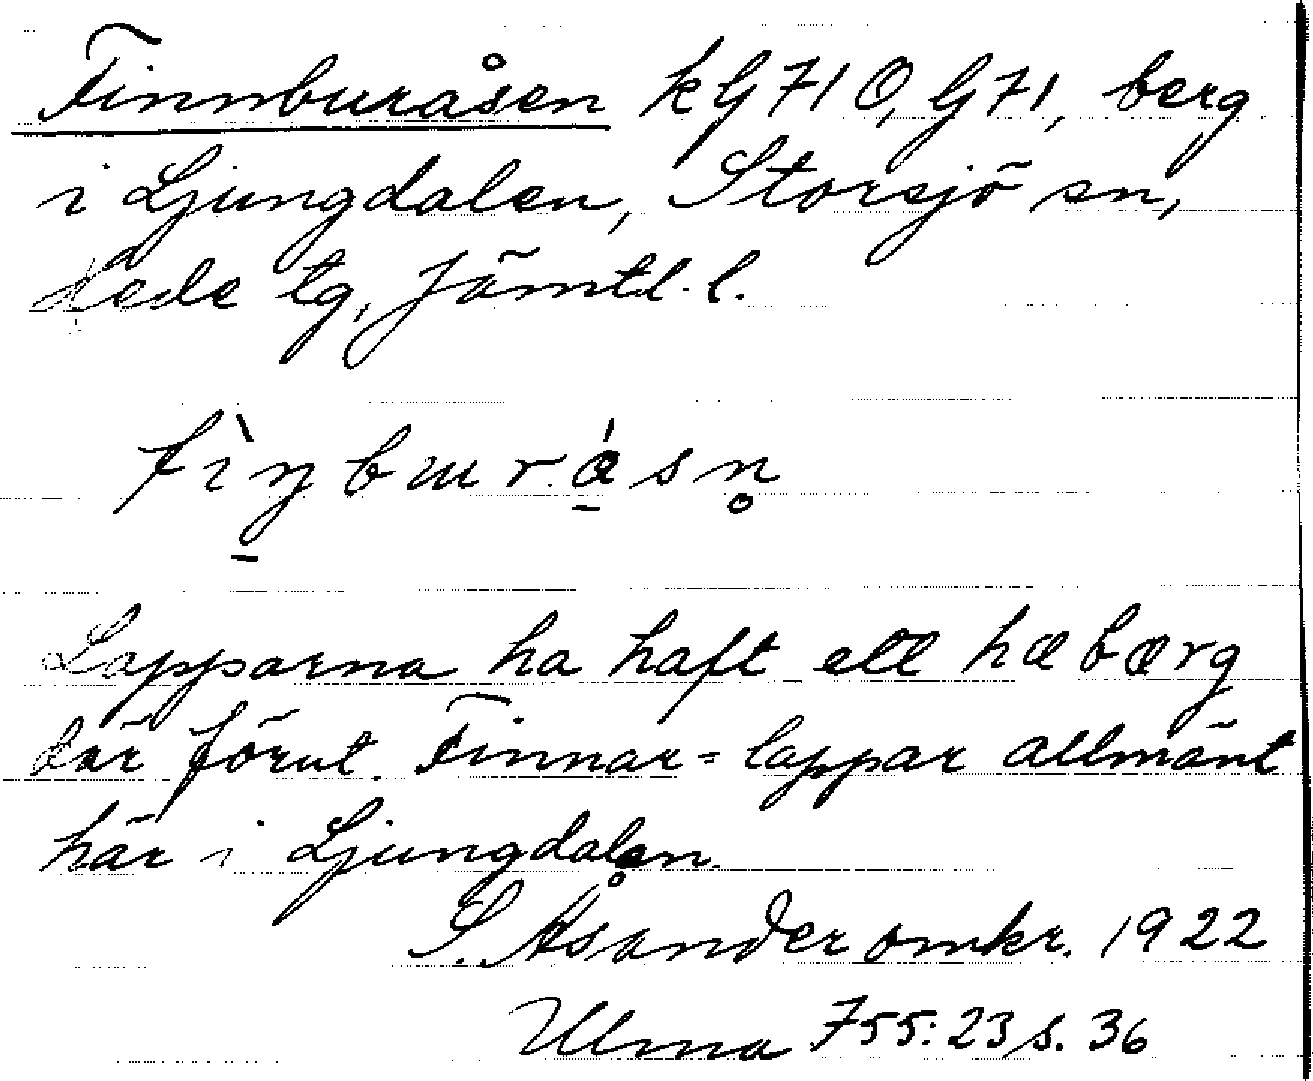 Finnburåsen kG 71 Ö, G 71, berg
i Ljungdalen, Storsjö sn,
Hede tg, Jämtl. l.
fìŋbɯrásn̥
Lapparna ha haft ett hæbærg
där förut. Finnar = lappar allmänt
här i Ljungdalen.
S. Åsander omkr. 1922
Ulma 755:23 s. 36